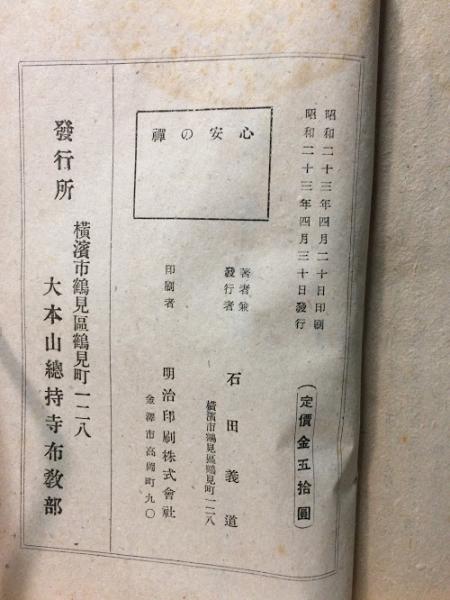 昭和二十三年四月二十日印刷
昭和二十三年四月三十日發行
定價金五拾圓
心安の禪
著者兼
發行者
石田義道
橫濱市鶴見區鶴見町一二八
印刷者
明治印刷株式會社
金澤市高岡町九〇
發行所
橫濱市鶴見區鶴見町一二八
大本山總持寺布敎部